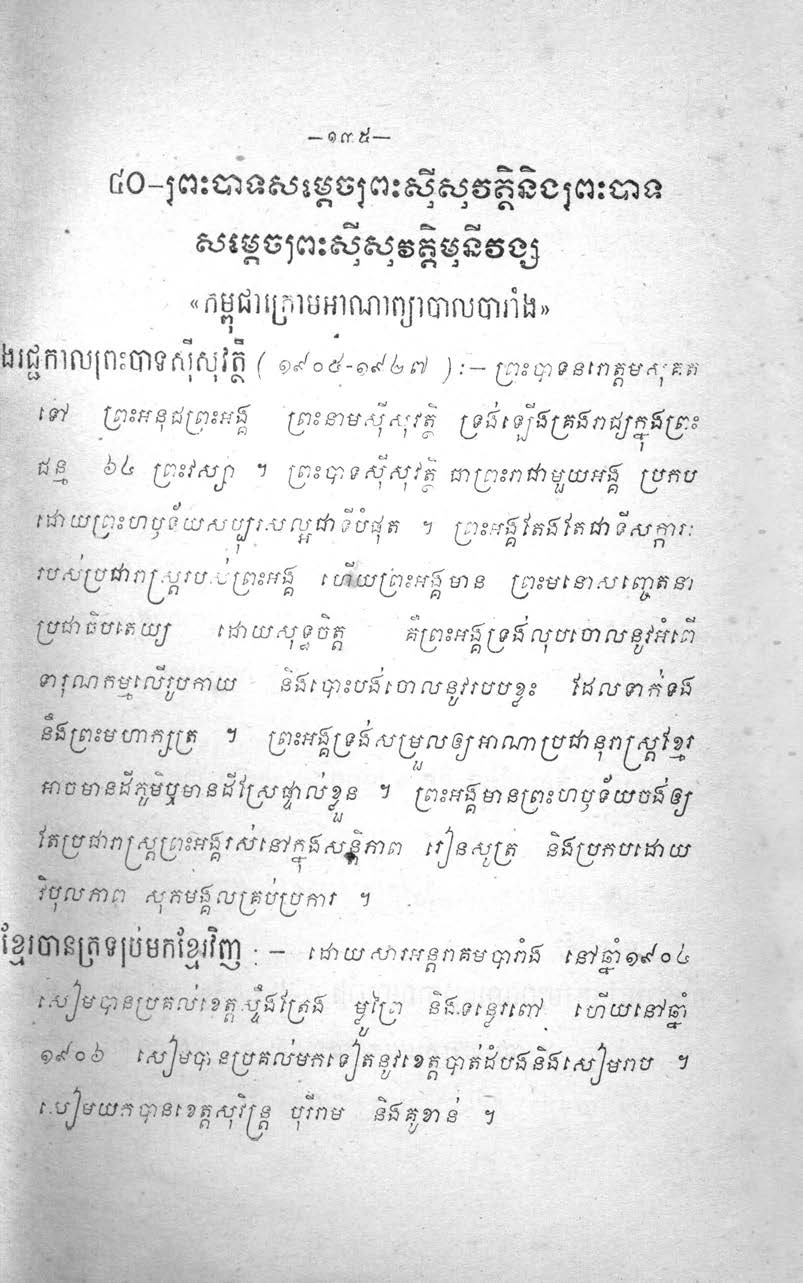 —១៣៥—
៤០-ព្រះបាទសម្តេចព្រះស៊ីសុវត្ថិនិងព្រះបាទ
សម្តេចព្រះស៊ីសុវត្ថិមុនីវង្ស
«កម្ពុជាក្រោមអាណាព្យាបាលបារាំង»
ងរជ្ជកាលព្រះបាទស៊ីសុវត្ថិ ( ១៩០៤-១៩២៧ ) : — ព្រះបាទនរោត្តមសុគត
ទៅ ព្រះអនុជព្រះអង្គ ព្រះនាមស៊ីសុវត្ថិ ទ្រង់ឡើងគ្រងរាជ្យក្នុងព្រះ
ជន្ម ៦៤ ព្រះវស្សា ។ ព្រះបាទស៊ីសុវត្ថិ ជាព្រះរាជាមួយអង្គ ប្រកប
ដោយព្រះហឫទ័យសប្បុរសល្អជាទីបំផុត ។ ព្រះអង្គតែងតែជាទីសក្ការៈ
របស់ប្រជារាស្ត្ររបស់ព្រះអង្គ ហើយព្រះអង្គមាន ព្រះមនោសញ្ចេតនា
ប្រជាធិបតេយ្យ ដោយសុទ្ធចិត្ត គឺព្រះអង្គទ្រង់លុបចោលនូវអំពើ
ទារុណកម្មលើរូបកាយ និងបោះបង់ចោលនូវរបបខ្លះ ដែលទាក់ទង
នឹងព្រះមហាក្សត្រ ។ ព្រះអង្គទ្រង់សម្រួលឲ្យអាណាប្រជានុរាស្ត្រខ្មែរ
អាចមានដីភូមិឬមានដីស្រែផ្ទាល់ខ្លួន ។ ព្រះអង្គមានព្រះហឫទ័យចង់ឲ្យ
តែប្រជារាស្ត្រព្រះអង្គរស់នៅក្នុងសន្តិភាព រៀនសូត្រ និងប្រកបដោយ
វិបុលភាព សុភមង្គលគ្រប់ប្រការ ។
ខ្មែរបានត្រឡប់មកខ្មែរវិញ : — ដោយសារអន្តរាគមបារាំង នៅឆ្នាំ១៩០៤
សៀមបានប្រគល់ខេត្តស្ទឹងត្រែង ម្លូព្រៃ និងទន្លេរពៅ ហើយនៅឆ្នាំ
១៩០៦ សៀមបានប្រគល់មកទៀតនូវខេត្តបាត់ដំបងនិងសៀមរាប ។
សៀមយកបានខេត្តសុរិន្ទ្រ បុរីរាម និងគូខាន់ ។